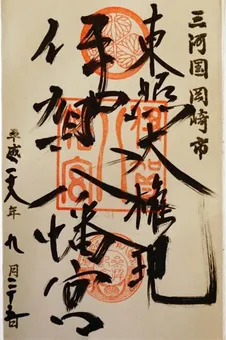 三河国岡崎市
東照大権現
伊賀八幡宮
平成二九年九月二十五日